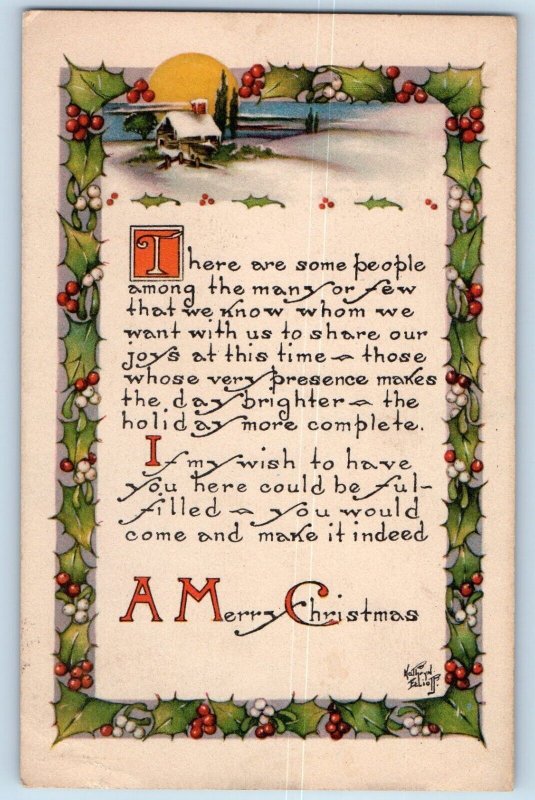 There are some people
among the many or few
that we know whom we
want with us to share our
joys at this time ~ those
whose very presence makes
the day brighter ~ the
holiday more complete.
If my wish to have
you here could be ful-
filled ~ you would
come and make it indeed
A Merry Christmas
Kathryn
Elliott.